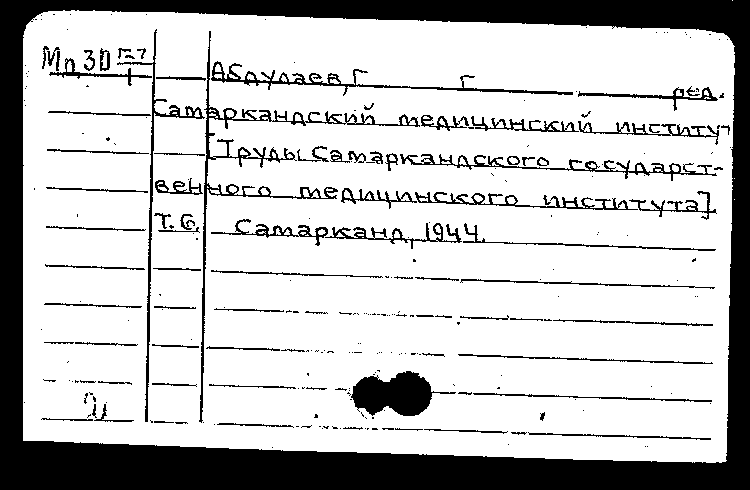 Мп 3D Г-7
1
Абдулаев, Г Г ред.
Самаркандский медицинский институ-
[Труды Самаркандского государст-
венного медицинского института].
Т. 6. Самарканд, 1944.